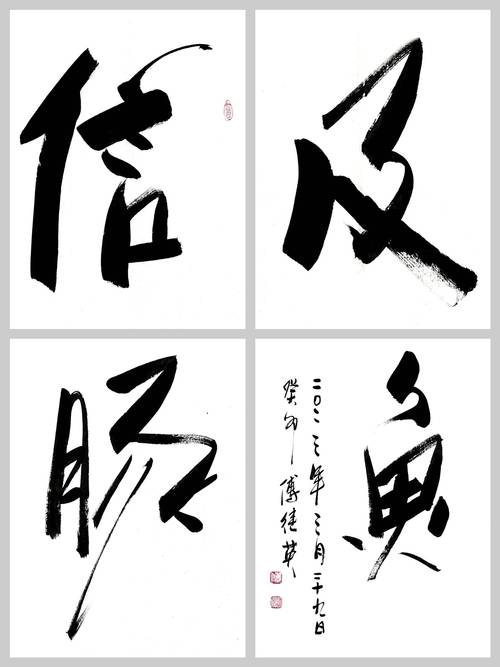 信
及
豚
魚
二〇二三年三月二十九日
癸卯 傅 英